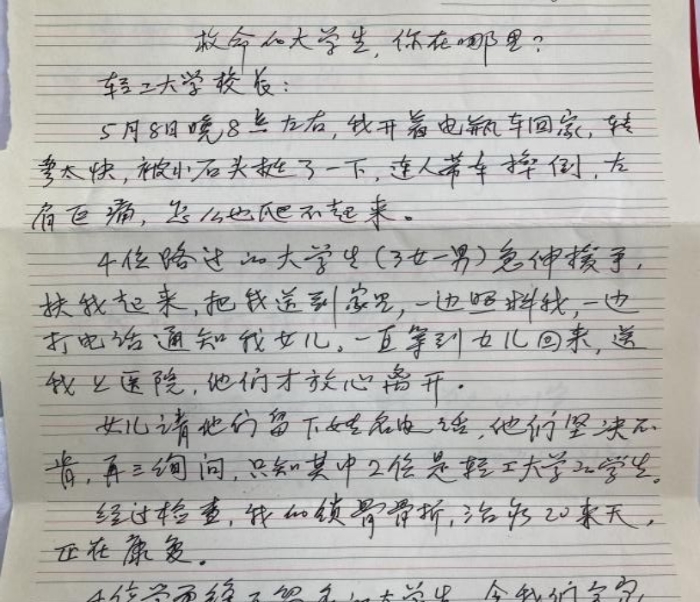 救命的大学生，你在哪里？
轻工大学校长：
5月8日晚8点左右，我开着电瓶车回家，转
弯太快，被小石头拦了一下，连人带车摔倒，左
肩巨痛，怎么也爬不起来。
4位路过的大学生（3女一男）急伸援手，
扶我起来，把我送到家里，一边照料我，一边
打电话通知我女儿。一直等到女儿回来，送
我上医院，他们才放心离开。
女儿请他们留下姓名电话，他们坚决不
肯，再三询问，只知其中2位是轻工大学的学生。
经过检查，我的锁骨骨折，治疗20来天，
正在康复。
4位学